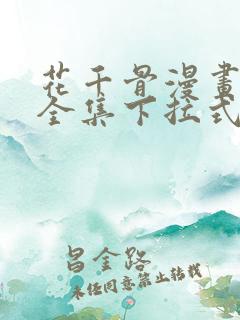 花千骨漫畫
全集下拉式
昌金路
未经同意禁止转载